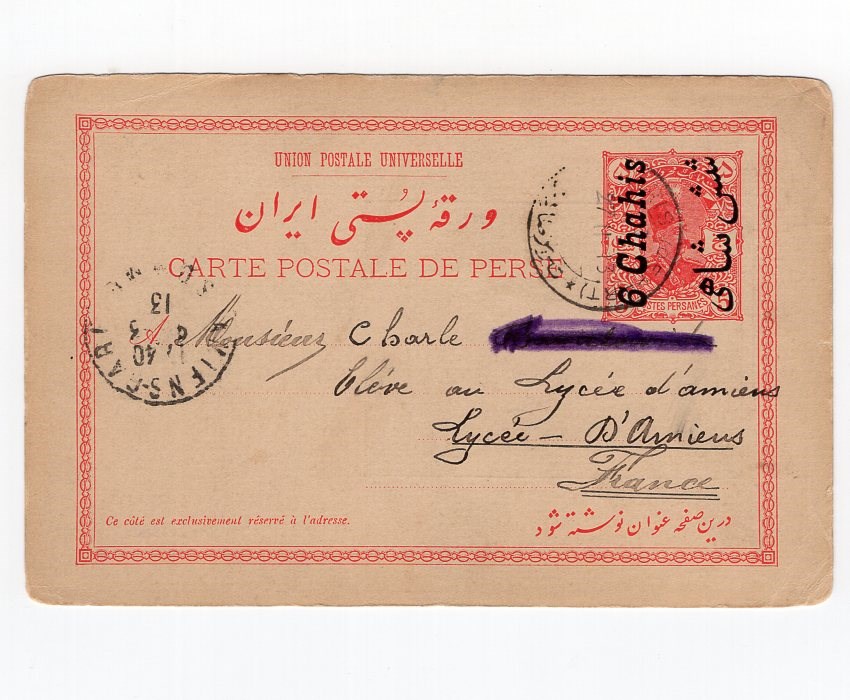 UNION POSTALE UNIVERSELLE
ورقهٔ پستی ایران
CARTE POSTALE DE PERSE
6 Chahis
شش شاهی
POSTES PERSANES
13
3
40
AMIENS-GARE
A Monsieur Charle
Elève au Lycée d'amiens
Lycée - D'Amiens
France
Ce côté est exclusivement réservé à l'adresse.
درین صفحه عنوان نوشته شود